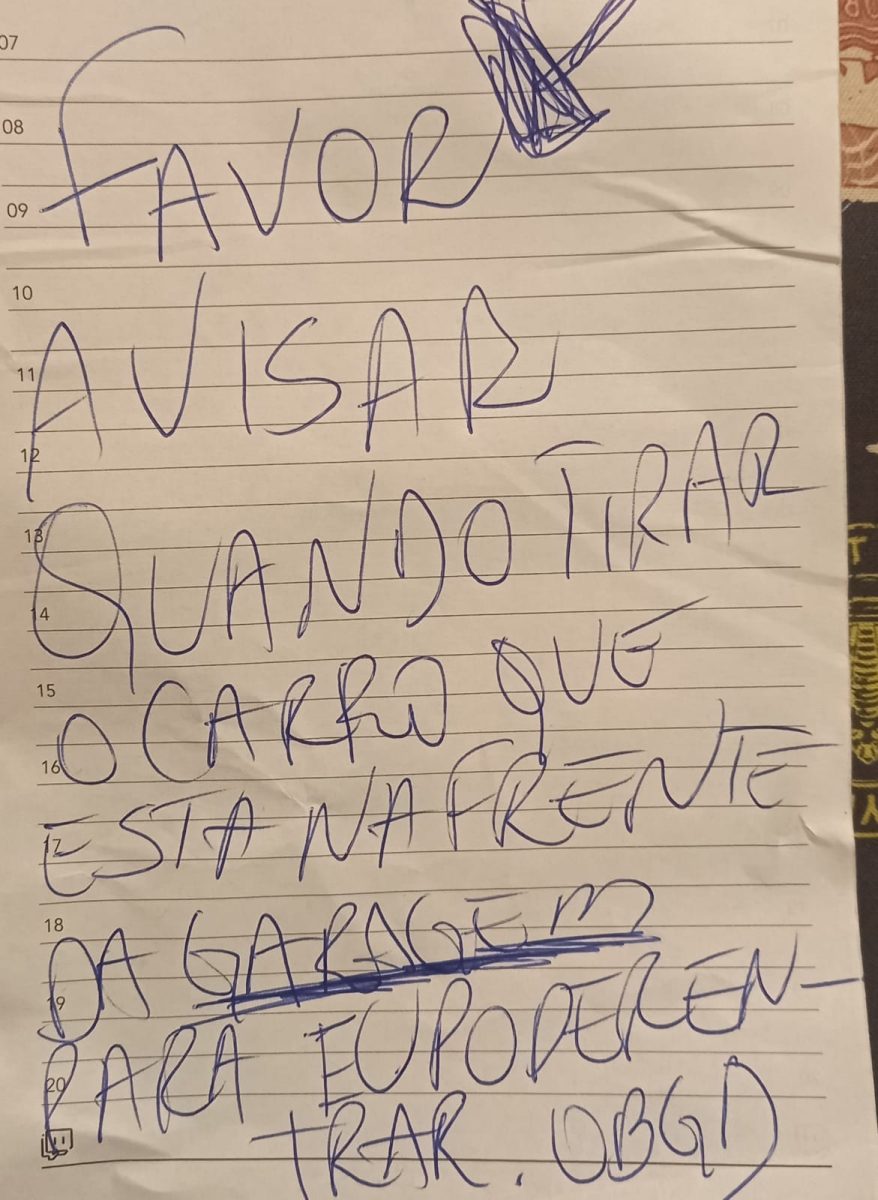 07
08
FAVOR
09
10
AVISAR
11
12
QUANDO TIRAR
13
14
O CARRO QUE
15
16
ESTA NA FRENTE
17
DA GARAGEM
18
19
PARA EU PODER EN-
20
TRAR. OBGD